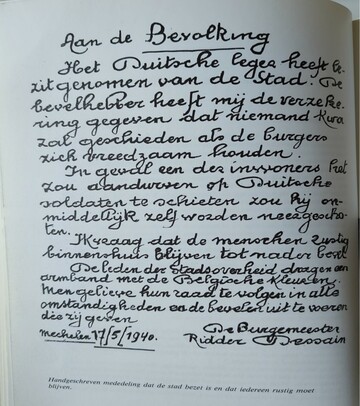 Aan de Bevolking
Het Duitsche leger heeft be-
zit genomen van de Stad. De
bevelhebber heeft mij de verzeke-
ring gegeven dat niemand kwa
zal geschieden als de burgers
zich vreedzaam houden.
In geval een des inwoners het
zou aandurven op Duitsche
soldaten te schieten zou hij on-
middellijk zelf worden neergescho-
ten.
Ik vraag dat de menschen rustig
binnenshuis blijven tot nader
De leden der stadsoverheid dragen een
armband met de Belgische kleuren.
Men gelieve hun raad te volgen in alle
omstandigheden en de bevelen uit te voeren
die zij geven
Mechelen 17/5/1940.
De Burgemeester
Ridder Dessain
Handgeschreven mededeling dat de stad bezet is en dat iedereen rustig moet
blijven.